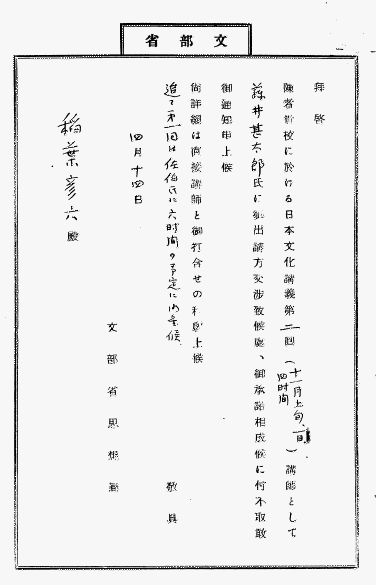 文部省
拝啓
陳者貴校に於ける日本文化講義第二回(十一月上旬、一回四時間)講師として
藤井甚太郎氏に御出講方交渉致候處、御承諾相成候に付不取敢
御通知申上候
尚詳細は直接講師と御打合せの程願上候
敬具
追て第一回は佐伯氏に六時間の予定に内定候
四月十四日
文部省思想局
稲葉彦六殿